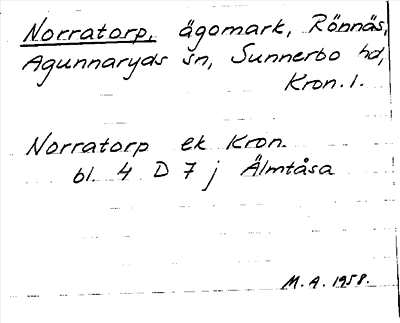 Norratorp, ägomark, Rönnäs,
Agunnaryds sn, Sunnerbo hd,
Kron. l.
Norratorp ek Kron.
bl. 4 D 7 j Älmtåsa
M.A. 1958.